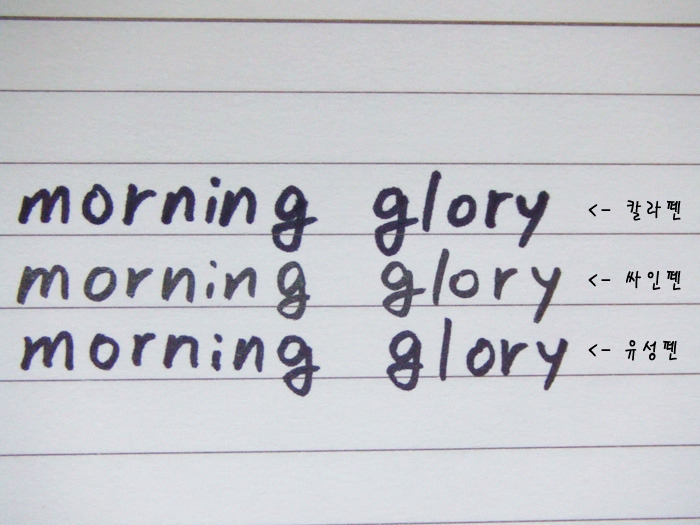 morning glory <- 칼라펜
morning glory <- 싸인펜
morning glory <- 유성펜